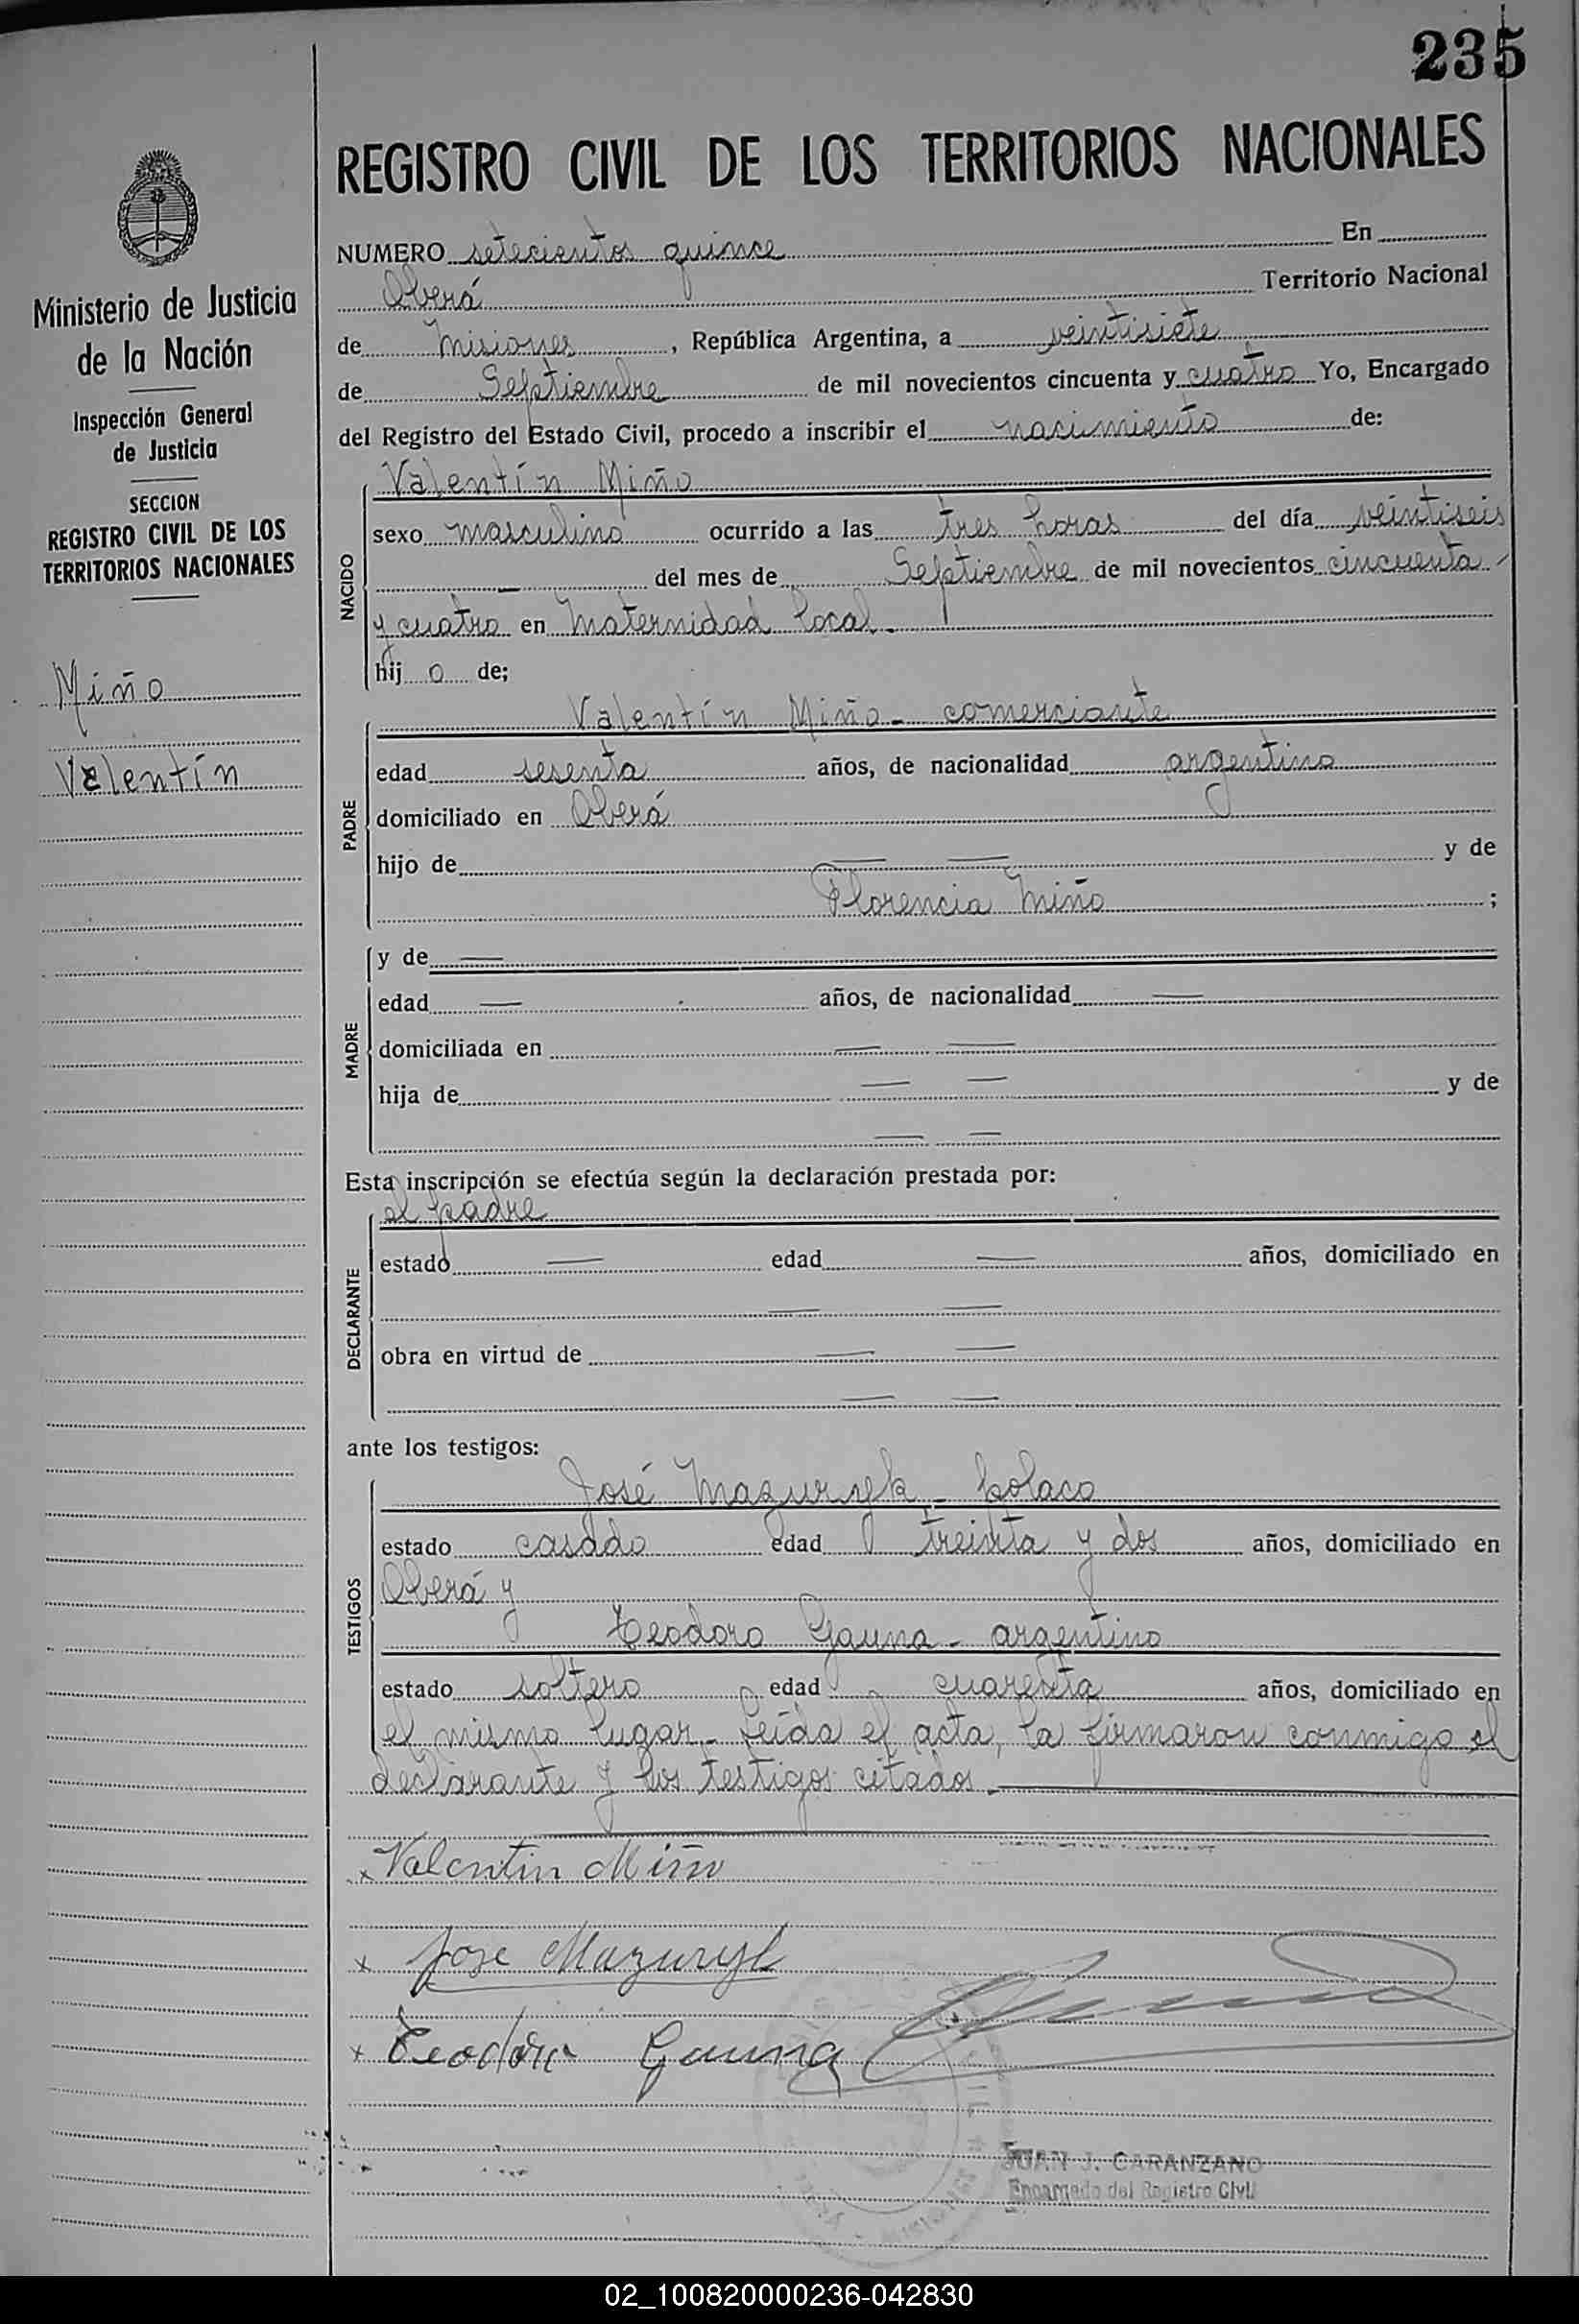 235
REGISTRO CIVIL DE LOS TERRITORIOS NACIONALES
Ministerio de Justicia
de la Nación
Inspección General
de Justicia
SECCION
REGISTRO CIVIL DE LOS
TERRITORIOS NACIONALES
Miño
Valentín
NUMERO setecientos quince En
Oberá Territorio Nacional
de Misiones, República Argentina, a veintisiete
de Septiembre de mil novecientos cincuenta y cuatro Yo, Encargado
del Registro del Estado Civil, procedo a inscribir el nacimiento de:
NACIDO
Valentín Miño
sexo masculino ocurrido a las tres horas del día veintiseis
— del mes de Septiembre de mil novecientos cincuenta
y cuatro en Maternidad local.
hij o de;
PADRE
Valentín Miño - comerciante
edad sesenta años, de nacionalidad argentino
domiciliado en Oberá
hijo de — — y de
Florencia Miño ;
MADRE
y de —
edad — años, de nacionalidad —
domiciliada en — —
hija de — — y de
— —
Esta inscripción se efectúa según la declaración prestada por:
DECLARANTE
el padre
estado — edad — años, domiciliado en
— —
obra en virtud de — —
— —
ante los testigos:
TESTIGOS
José Mazuryk - polaco
estado casado edad treinta y dos años, domiciliado en
Oberá y
Teodoro Gauna - argentino
estado soltero edad cuarenta años, domiciliado en
el mismo lugar. Leída el acta, la firmaron conmigo el
declarante y los testigos citados.
x Valentin Miño
x Jose Mazuryk
x Teodoro Gauna
JUAN J. CARANZANO
Encargado del Registro Civil
02_100820000236-042830